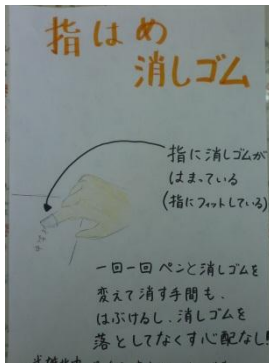 指はめ
消しゴム
指に消しゴムが
はまっている
(指にフィットしている)
一回一回ペンと消しゴムを
変えて消す手間も、
はぶけるし、消しゴムを
落としてなくす心配なし!